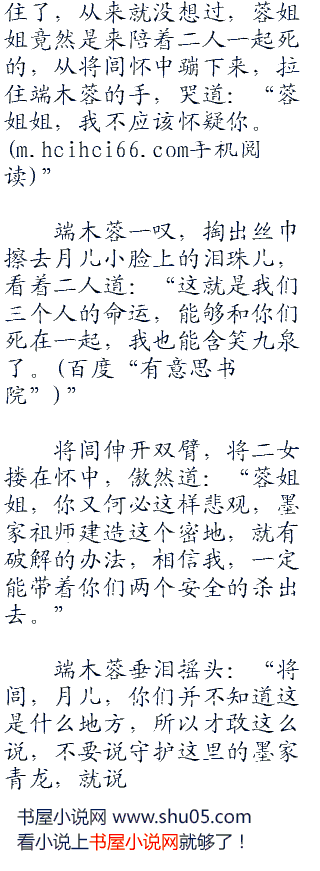 住了，从来就没想过，蓉姐
姐竟然是来陪着二人一起死
的，从将闾怀中蹦下来，拉
住端木蓉的手，哭道：“蓉
姐姐，我不应该怀疑你。
(m.hcihci66.com手机阅
读)”
端木蓉一叹，掏出丝巾
擦去月儿小脸上的泪珠儿，
看着二人道：“这就是我们
三个人的命运，能够和你们
死在一起，我也能含笑九泉
了。(百度“有意思书
院”)”
将闾伸开双臂，将二女
搂在怀中，傲然道：“蓉姐
姐，你又何必这样悲观，墨
家祖师建造这个密地，就有
破解的办法，相信我，一定
能带着你们两个安全的杀出
去。”
端木蓉垂泪摇头：“将
闾，月儿，你们并不知道这
是什么地方，所以才敢这么
说，不要说守护这里的墨家
青龙，就说
书屋小说网 www.shu05.com
看小说上书屋小说网就够了！